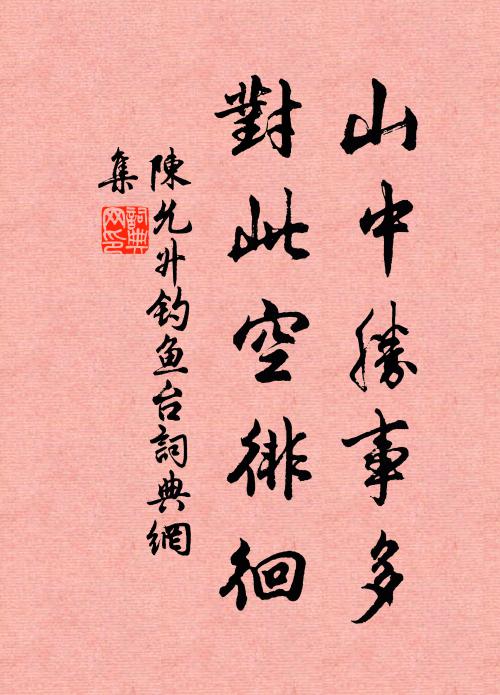 山中勝事多
對此空徘徊
陳允升钓鱼台詞典網
集
詞典
网印